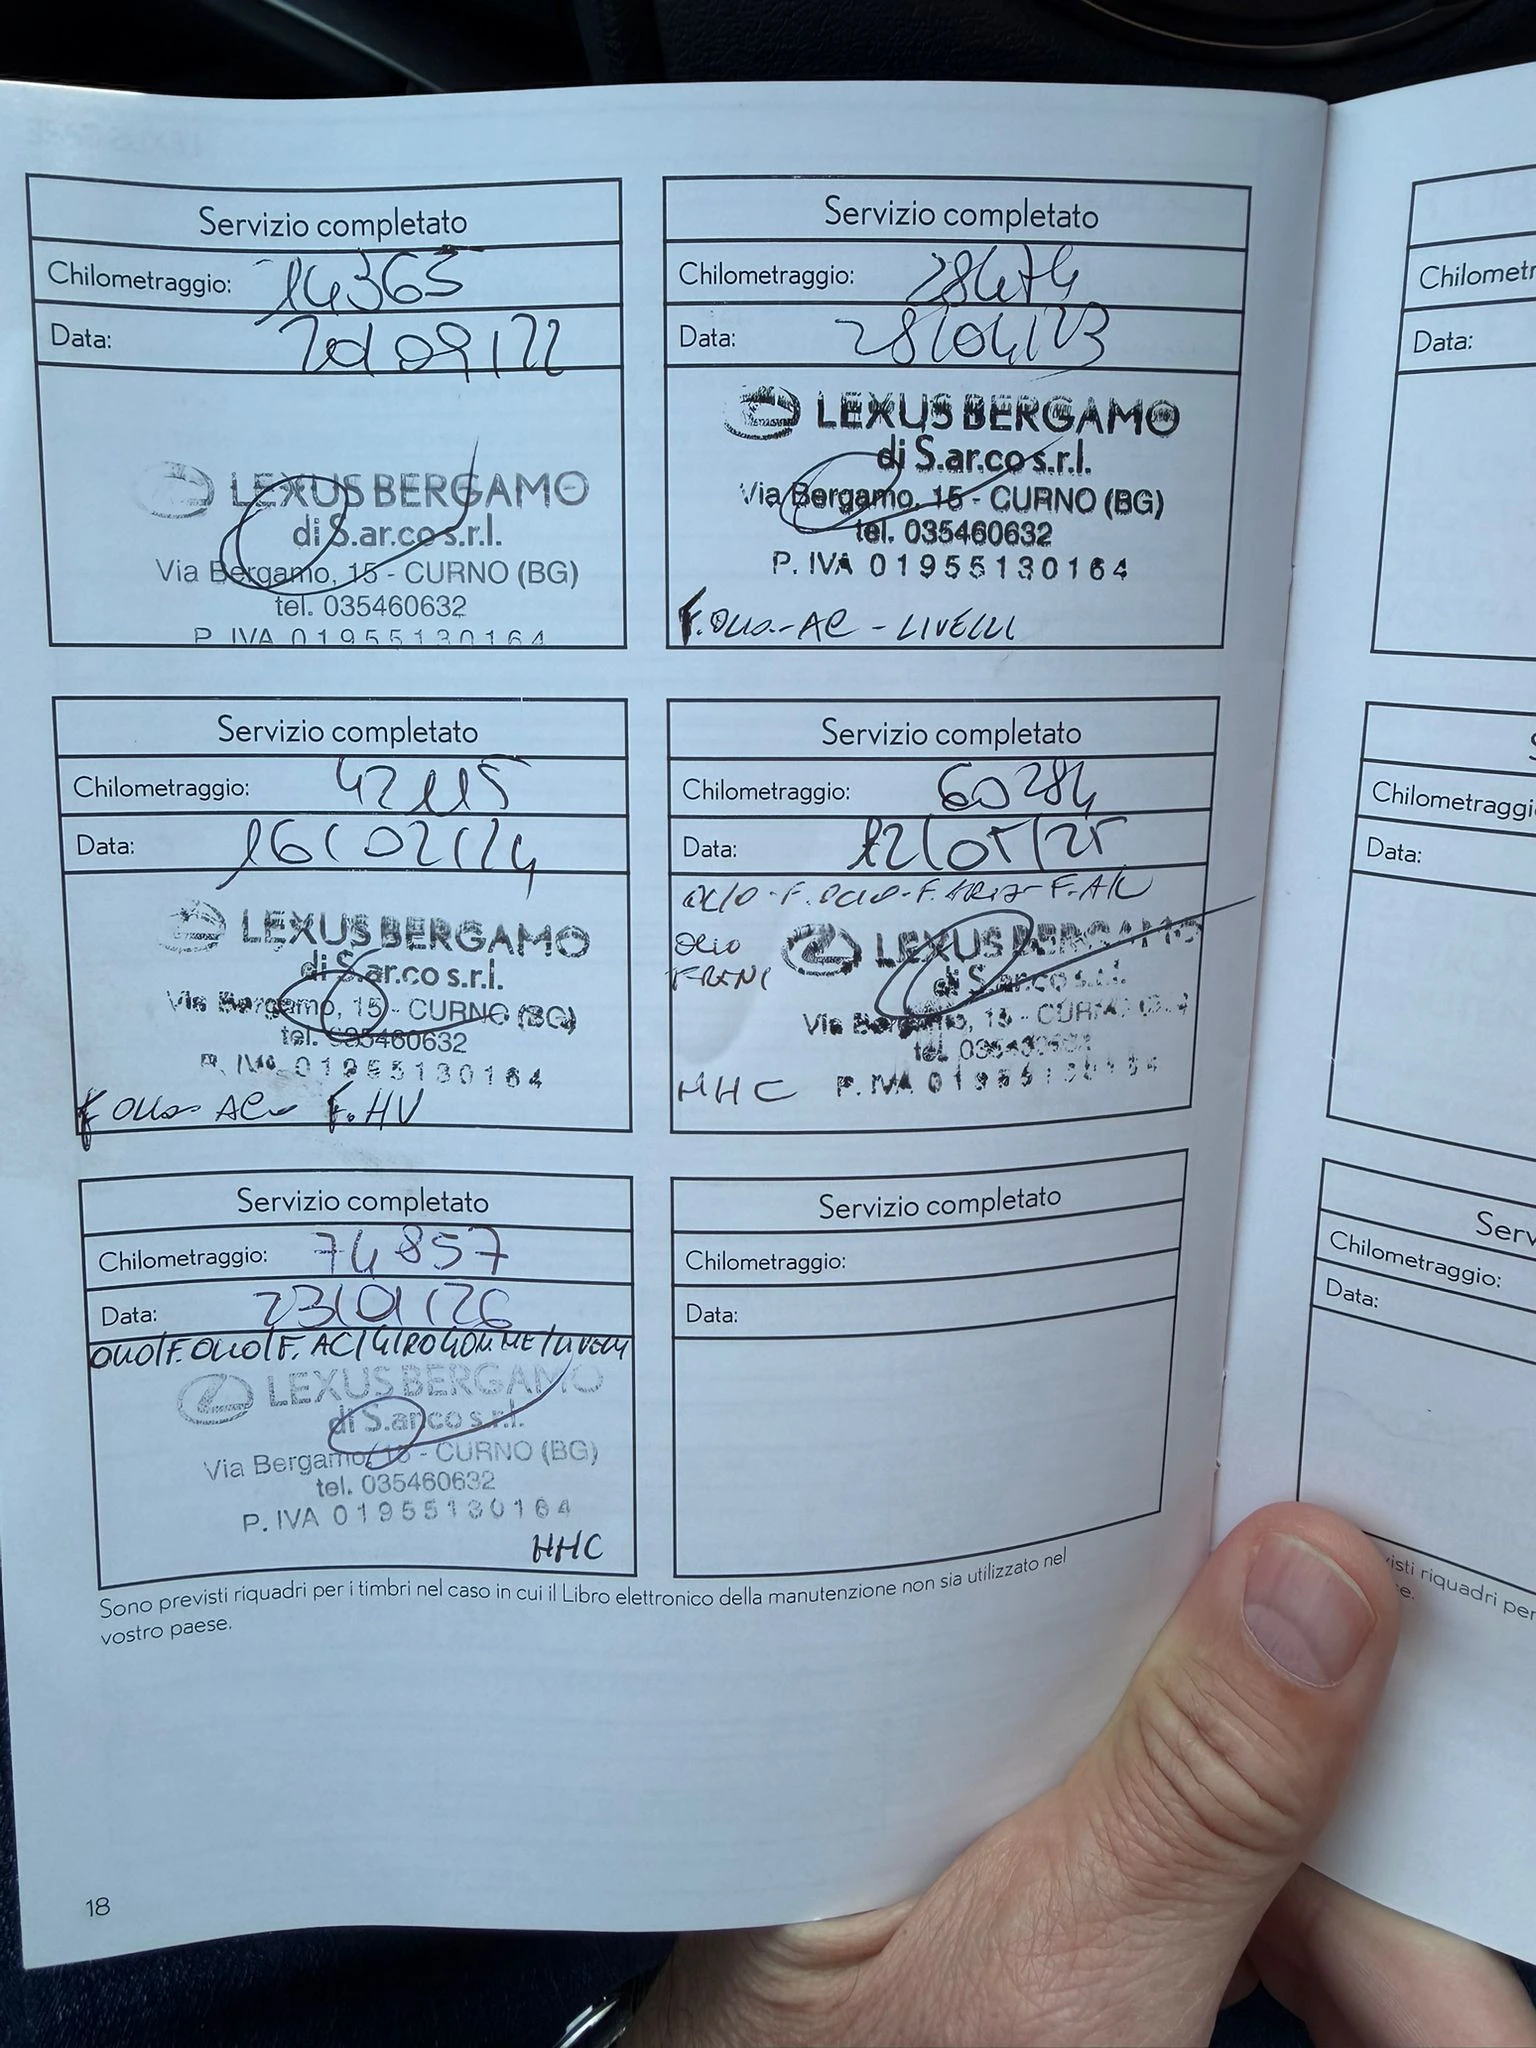 Servizio completato
Chilometraggio: 14365
Data: 20/09/22
LEXUS BERGAMO
di S.ar.co s.r.l.
Via Bergamo, 15 - CURNO (BG)
tel. 035460632
P. IVA 01955130164
Servizio completato
Chilometraggio: 28474
Data: 28/04/23
LEXUS BERGAMO
di S.ar.co s.r.l.
Via Bergamo, 15 - CURNO (BG)
tel. 035460632
P. IVA 01955130164
F. OLIO - AC - LIVELLI
Servizio completato
Chilometraggio: 42115
Data: 16/02/24
LEXUS BERGAMO
di S.ar.co s.r.l.
Via Bergamo, 15 - CURNO (BG)
tel. 035460632
P. IVA 01955130164
F OLIO AC F. HV
Servizio completato
Chilometraggio: 60284
Data: 12/05/25
OLIO - F. OLIO - F. ARIA - F. A/C
OLIO
FRENI
LEXUS BERGAMO
di S.ar.co s.r.l.
Via Bergamo, 15 - CURNO
tel. 035460632
P. IVA 01955130164
HHC
Servizio completato
Chilometraggio: 74857
Data: 23/01/26
OLIO/F. OLIO/F. AC/GIRO GOMME/LIVELLI
LEXUS BERGAMO
di S.ar.co s.r.l.
Via Bergamo, 15 - CURNO (BG)
tel. 035460632
P. IVA 01955130164
HHC
Servizio completato
Chilometraggio:
Data:
Sono previsti riquadri per i timbri nel caso in cui il Libro elettronico della manutenzione non sia utilizzato nel
vostro paese.
18
Chilometr
Data:
S
Chilometraggi
Data:
Serv
Chilometraggio:
Data:
visti riquadri per
e.